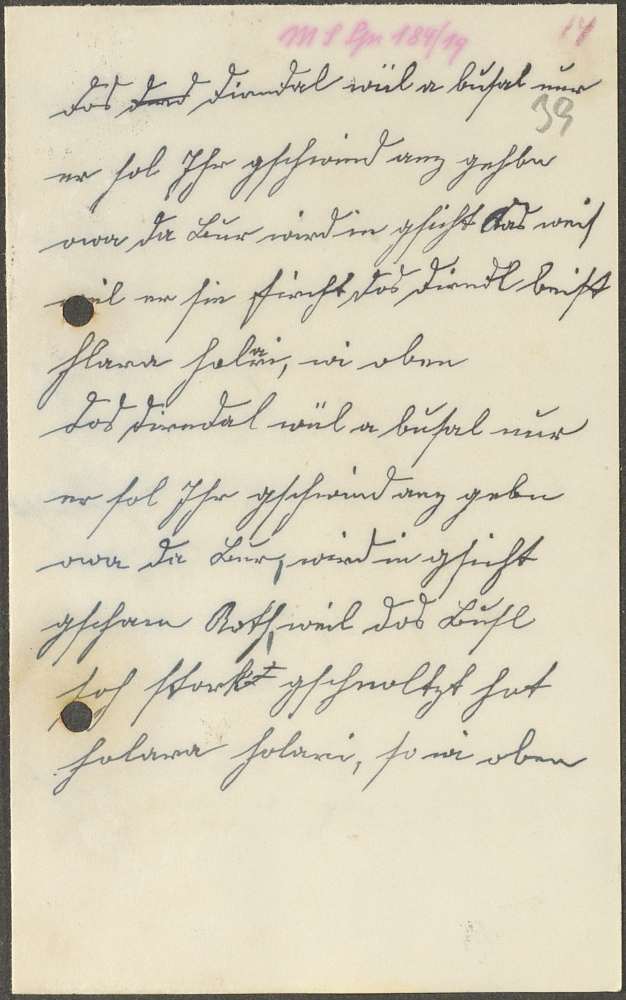 M S Spr 184/19 14
das das Dirndal wül a busal nur
39
er sol Ihr gschwind anz gehbn
owa da Bur wird in gsicht kas weis
weil er sie fircht das dirndl beist
hlara holari, wi oben
das dirndal wül a busal nur
er sol Ihr gschwind anz gebn
owa da Bur, wird in gsicht
gscham Roth, weil das Busl
so stork gschnoltzt hat
holara holari, so wi oben